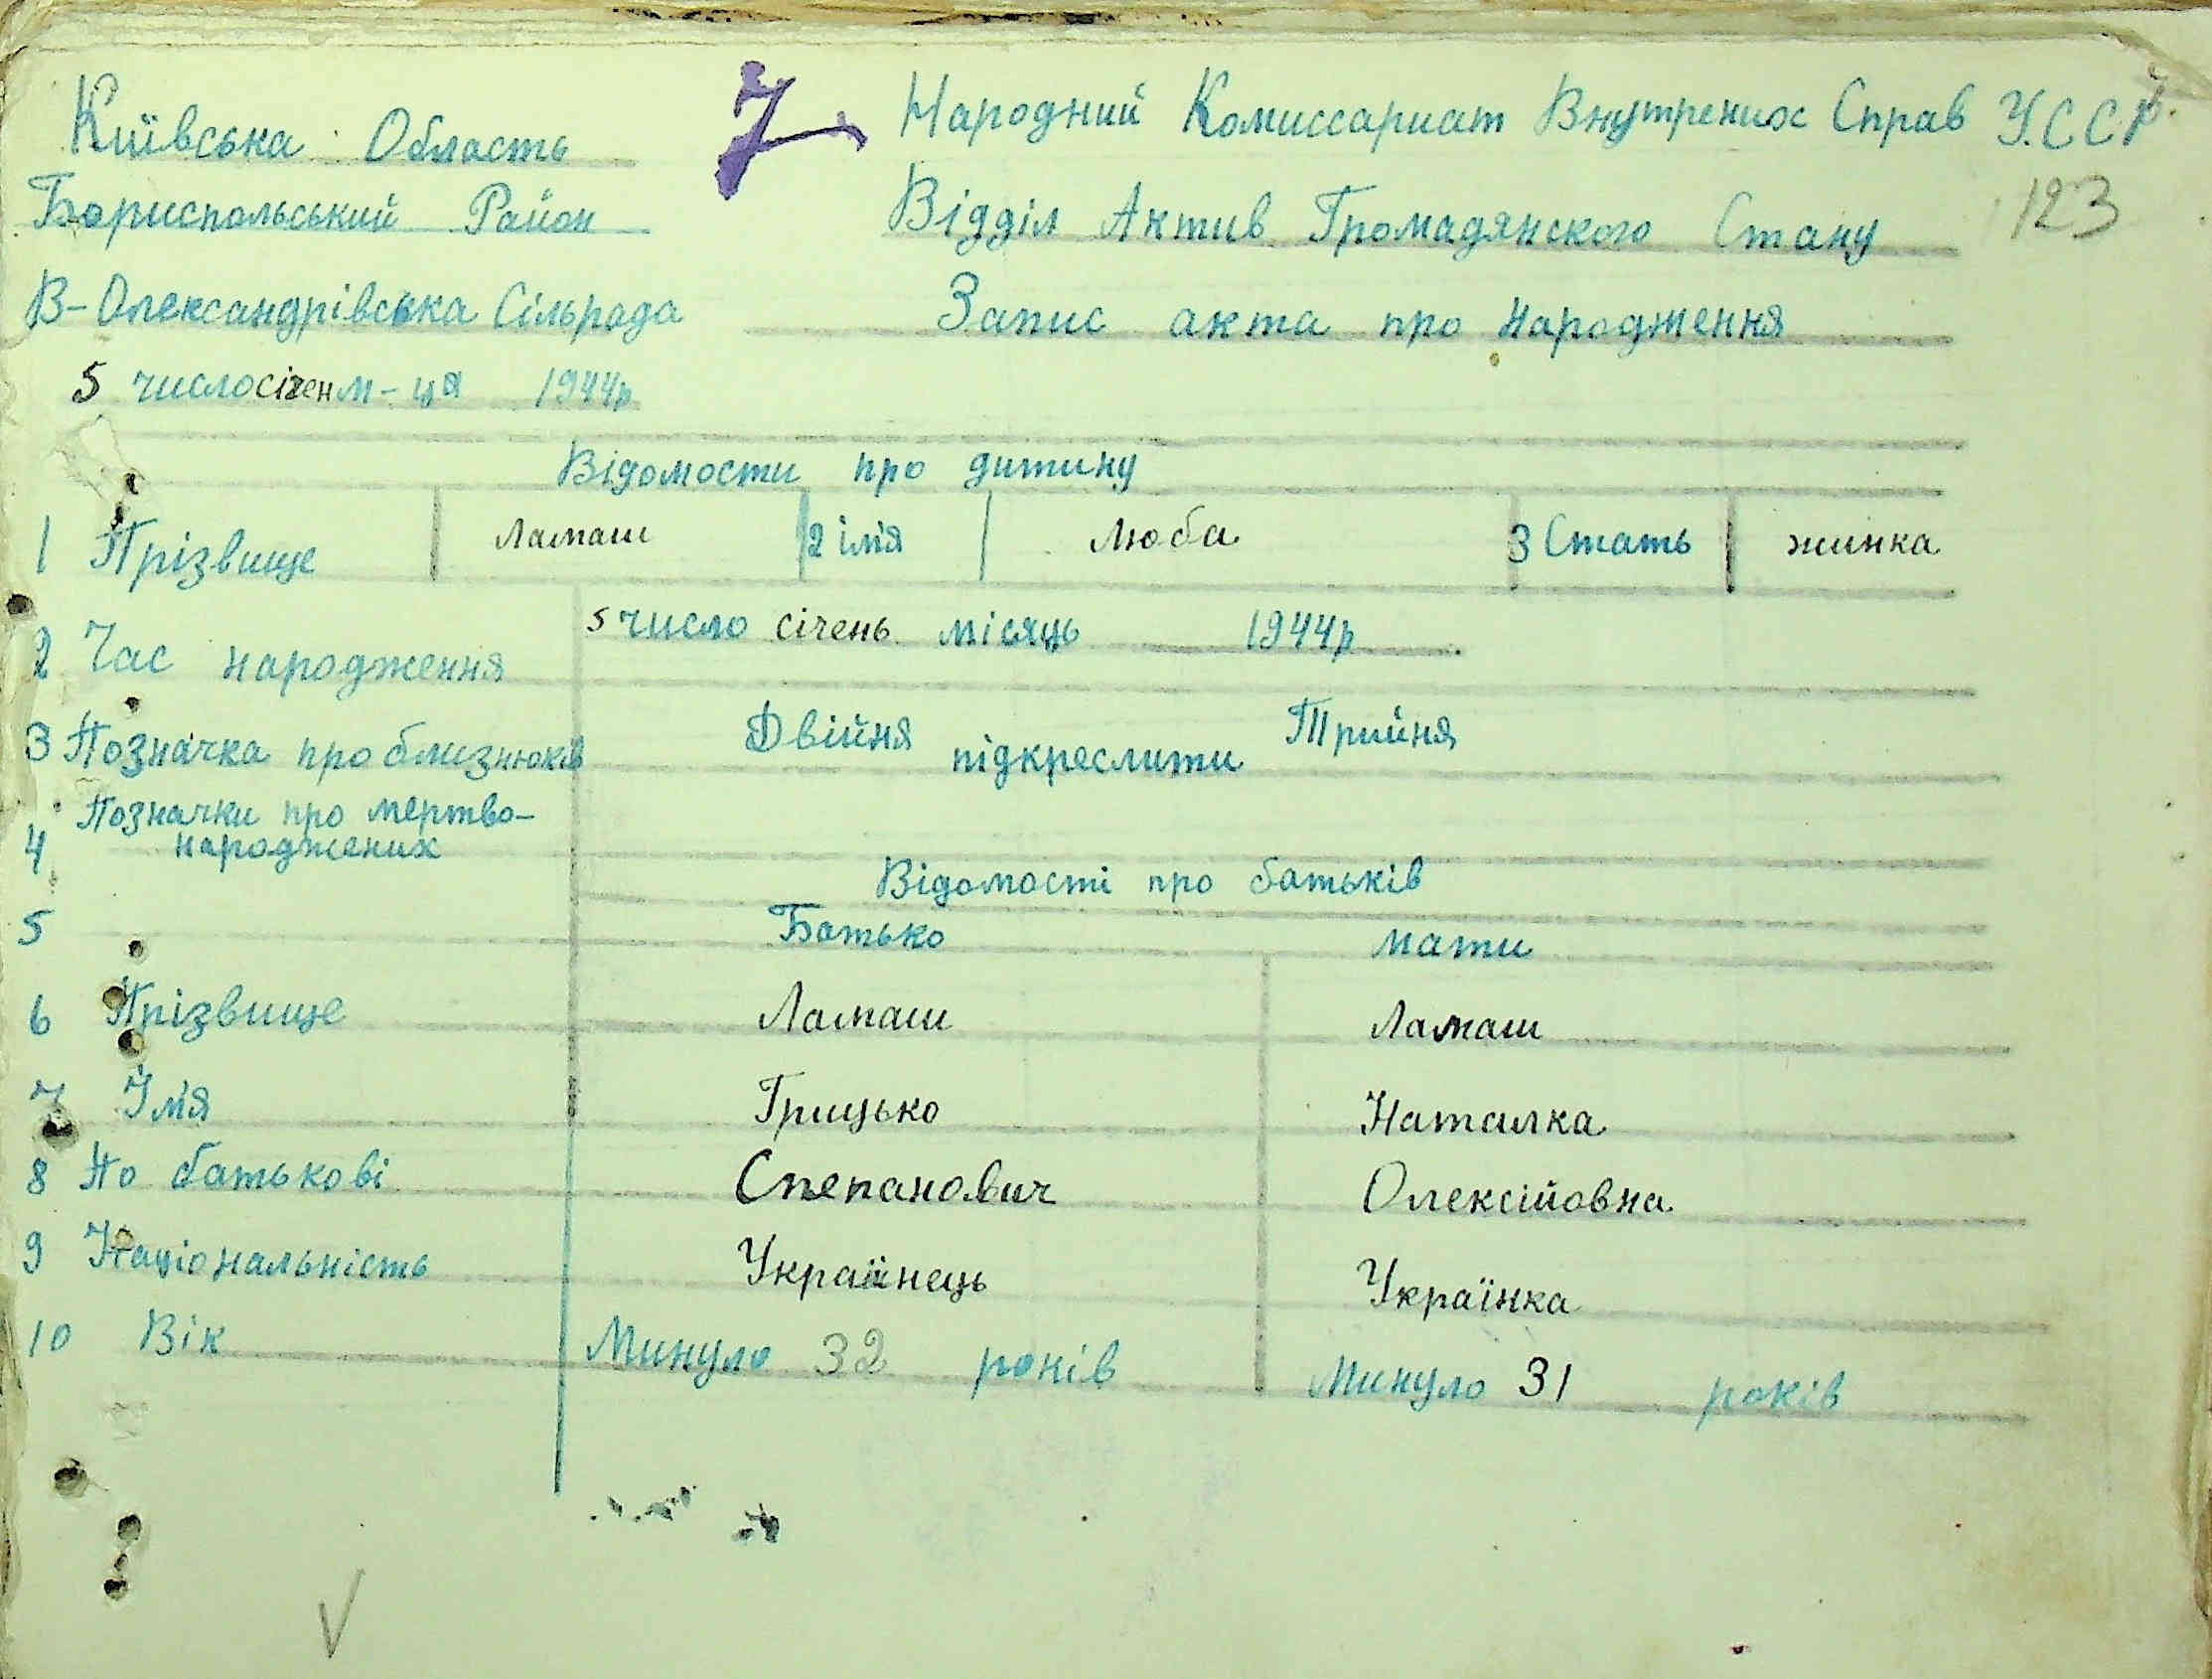 Київська Область
Бориспольський Район
В-Олександрівська Сільрада
5 число січен м-ця 1944р
7
Народний Комиссариат Внутрених Справ У.ССР.
123
Відділ Актив Громадянского Стану
Запис акта про народження
Відомости про дитину
1 Прізвище Ламаш 2 імя Люба 3 Стать жинка
2 Час народження 5 число січень місяць 1944р
3 Позначка про близнюків Двійня підкреслити Трийня
4 Позначки про мертво-
народжених
Відомості про батьків
5 Батько мати
6 Прізвище Ламаш Ламаш
7 Імя Грицько Наталка
8 По батькові Степанович Олексійовна
9 Національність Українець Українка
10 Вік Минуло 32 років Минуло 31 років